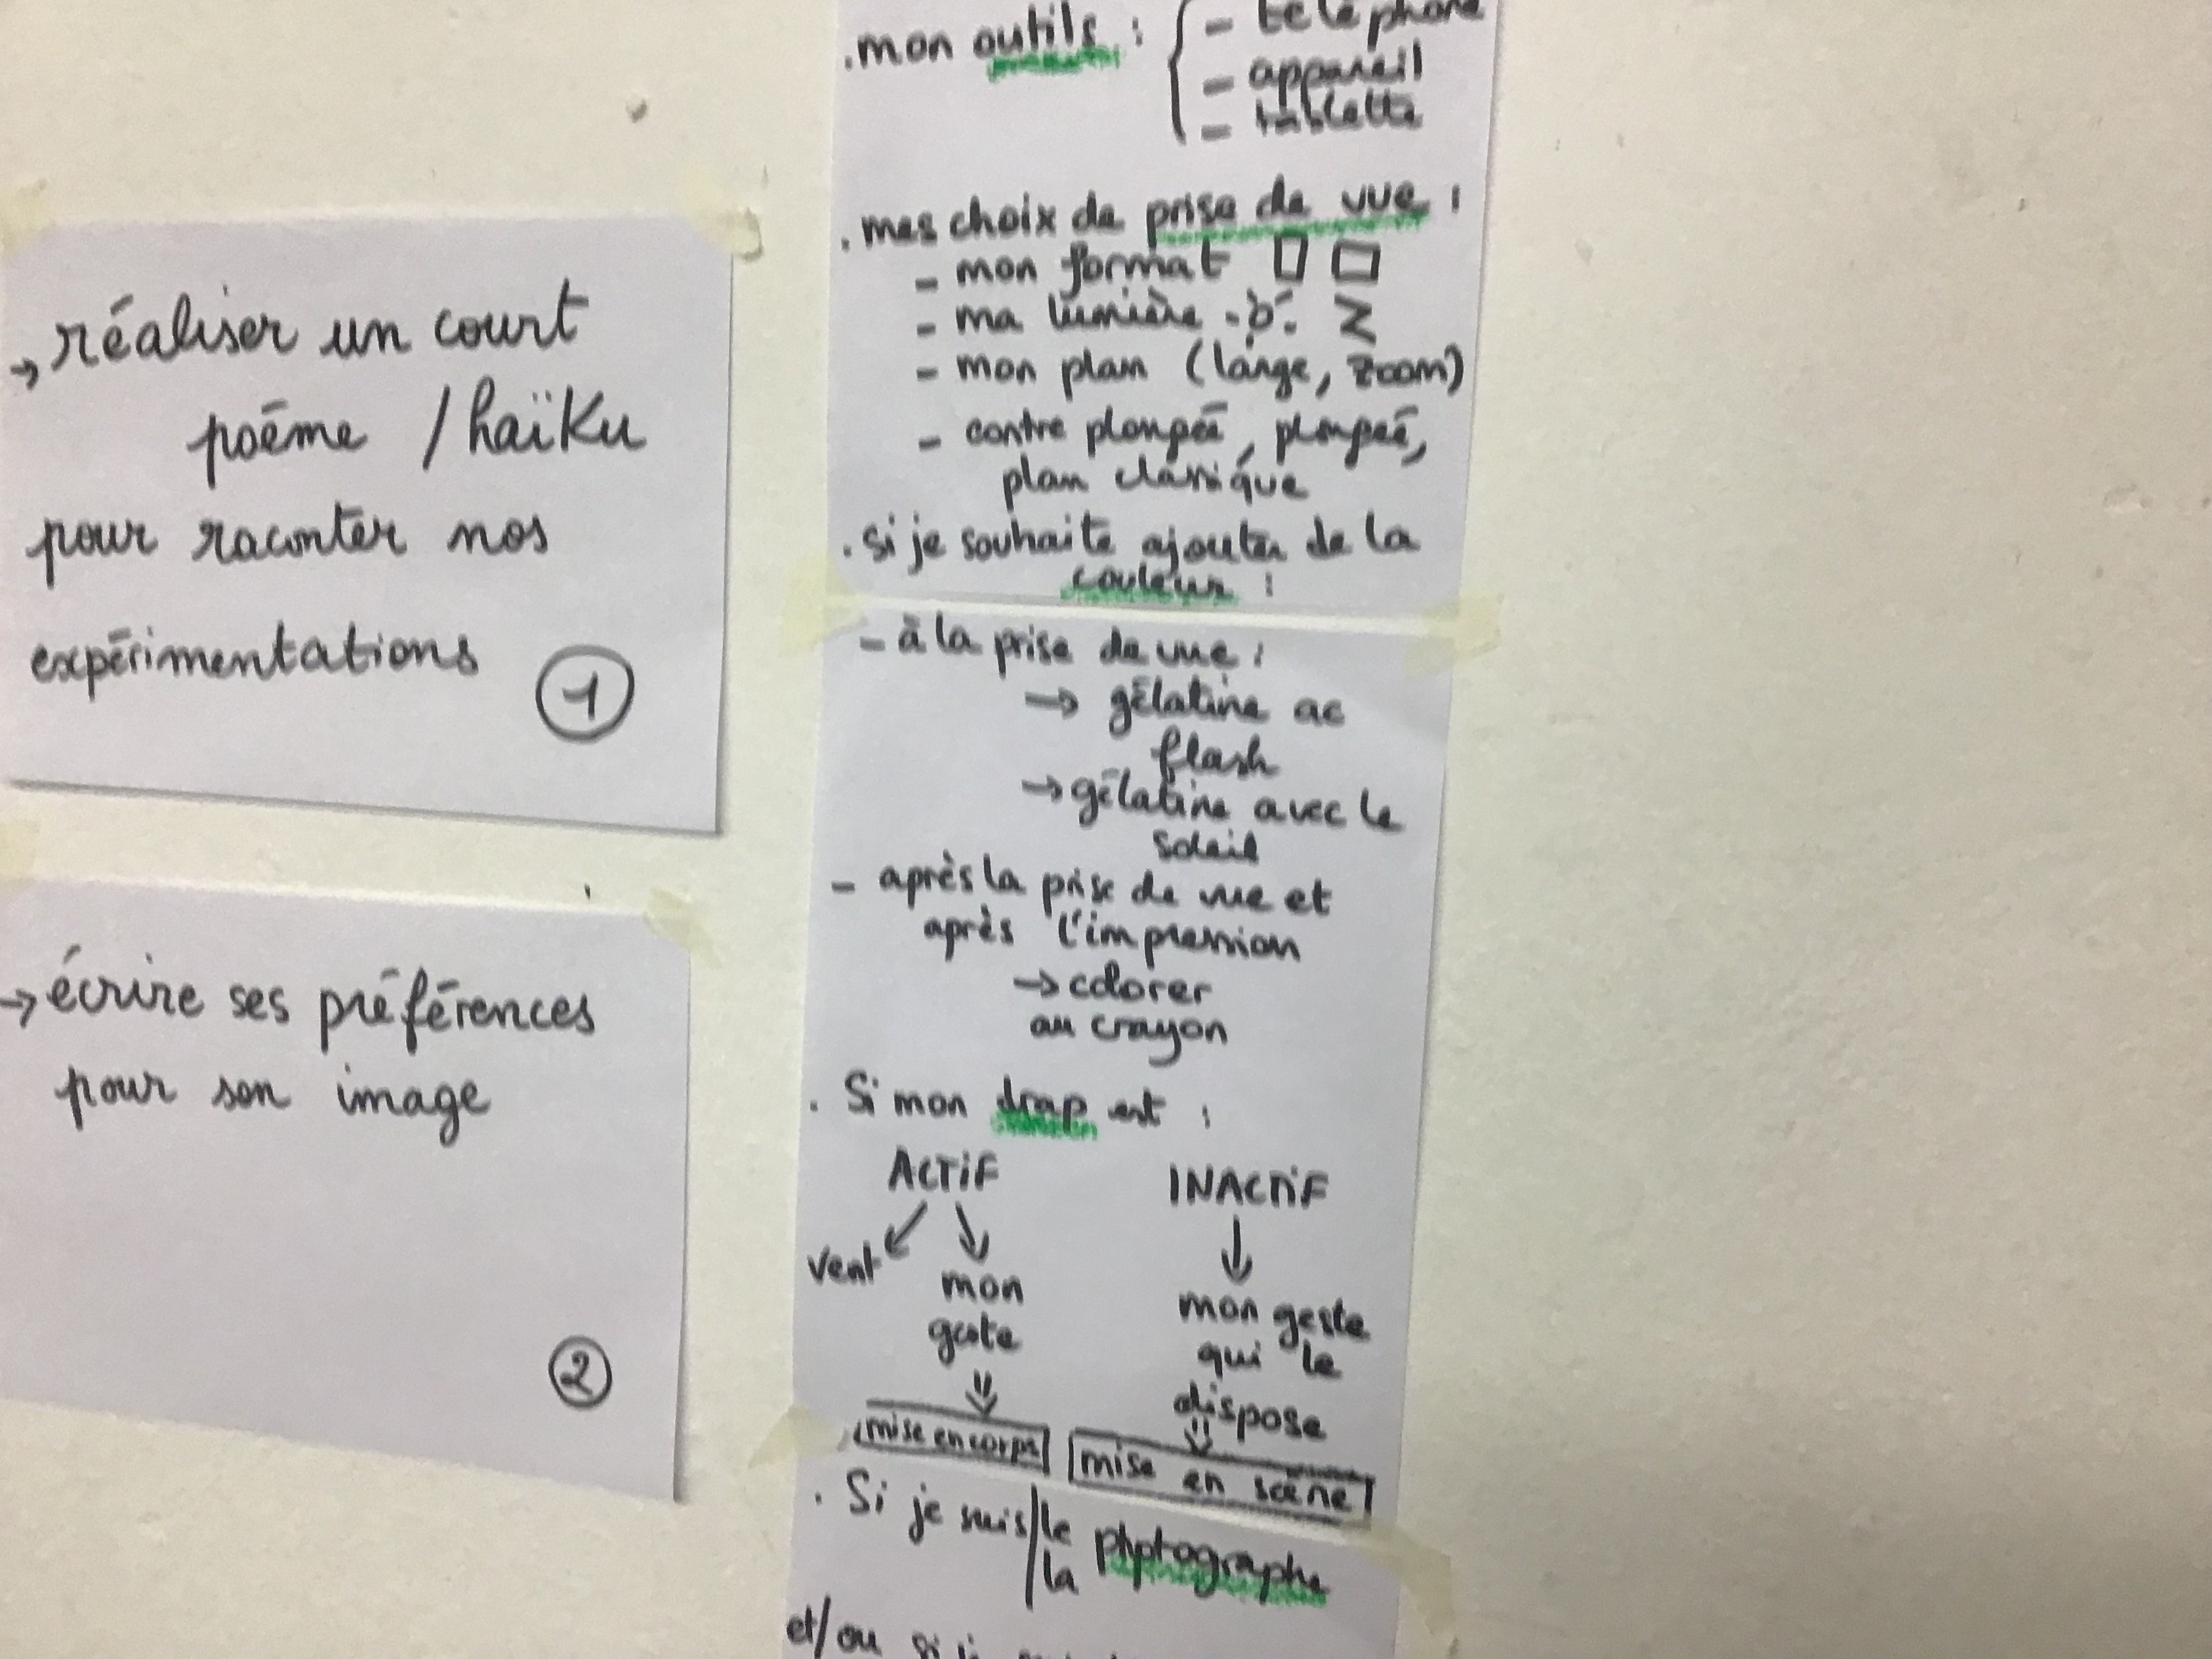 → réaliser un court
poème / haïku
pour raconter nos
expérimentations
1
→ écrire ses préférences
pour son image
2
. mon outils :
- téléphone
- appareil
- tablette
. mes choix de prise de vue :
- mon format
- ma lumière
- mon plan (large, zoom)
- contre plongée, plongée,
plan classique
. Si je souhaite ajouter de la
couleur :
- à la prise de vue :
→ gélatine ac
flash
→ gélatine avec le
soleil
- après la prise de vue et
après l'impression
→ colorer
au crayon
. Si mon drap est :
ACTIF INACTIF
vent mon geste
mon geste qui le dispose
mise en corps mise en scène
. Si je suis le
la photographe
et/ou si je